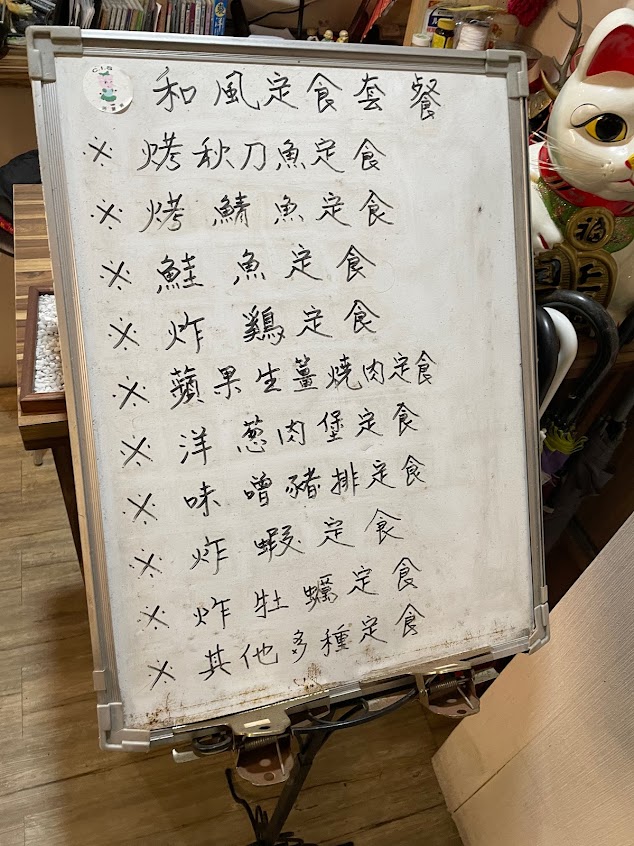 和風定食套餐
※ 烤秋刀魚定食
※ 烤鯖魚定食
※ 鮭魚定食
※ 炸鷄定食
※ 蘋果生薑燒肉定食
※ 洋葱肉堡定食
※ 味噌豬排定食
※ 炸蝦定食
※ 炸牡蠣定食
※ 其他多種定食
C.I.G
福